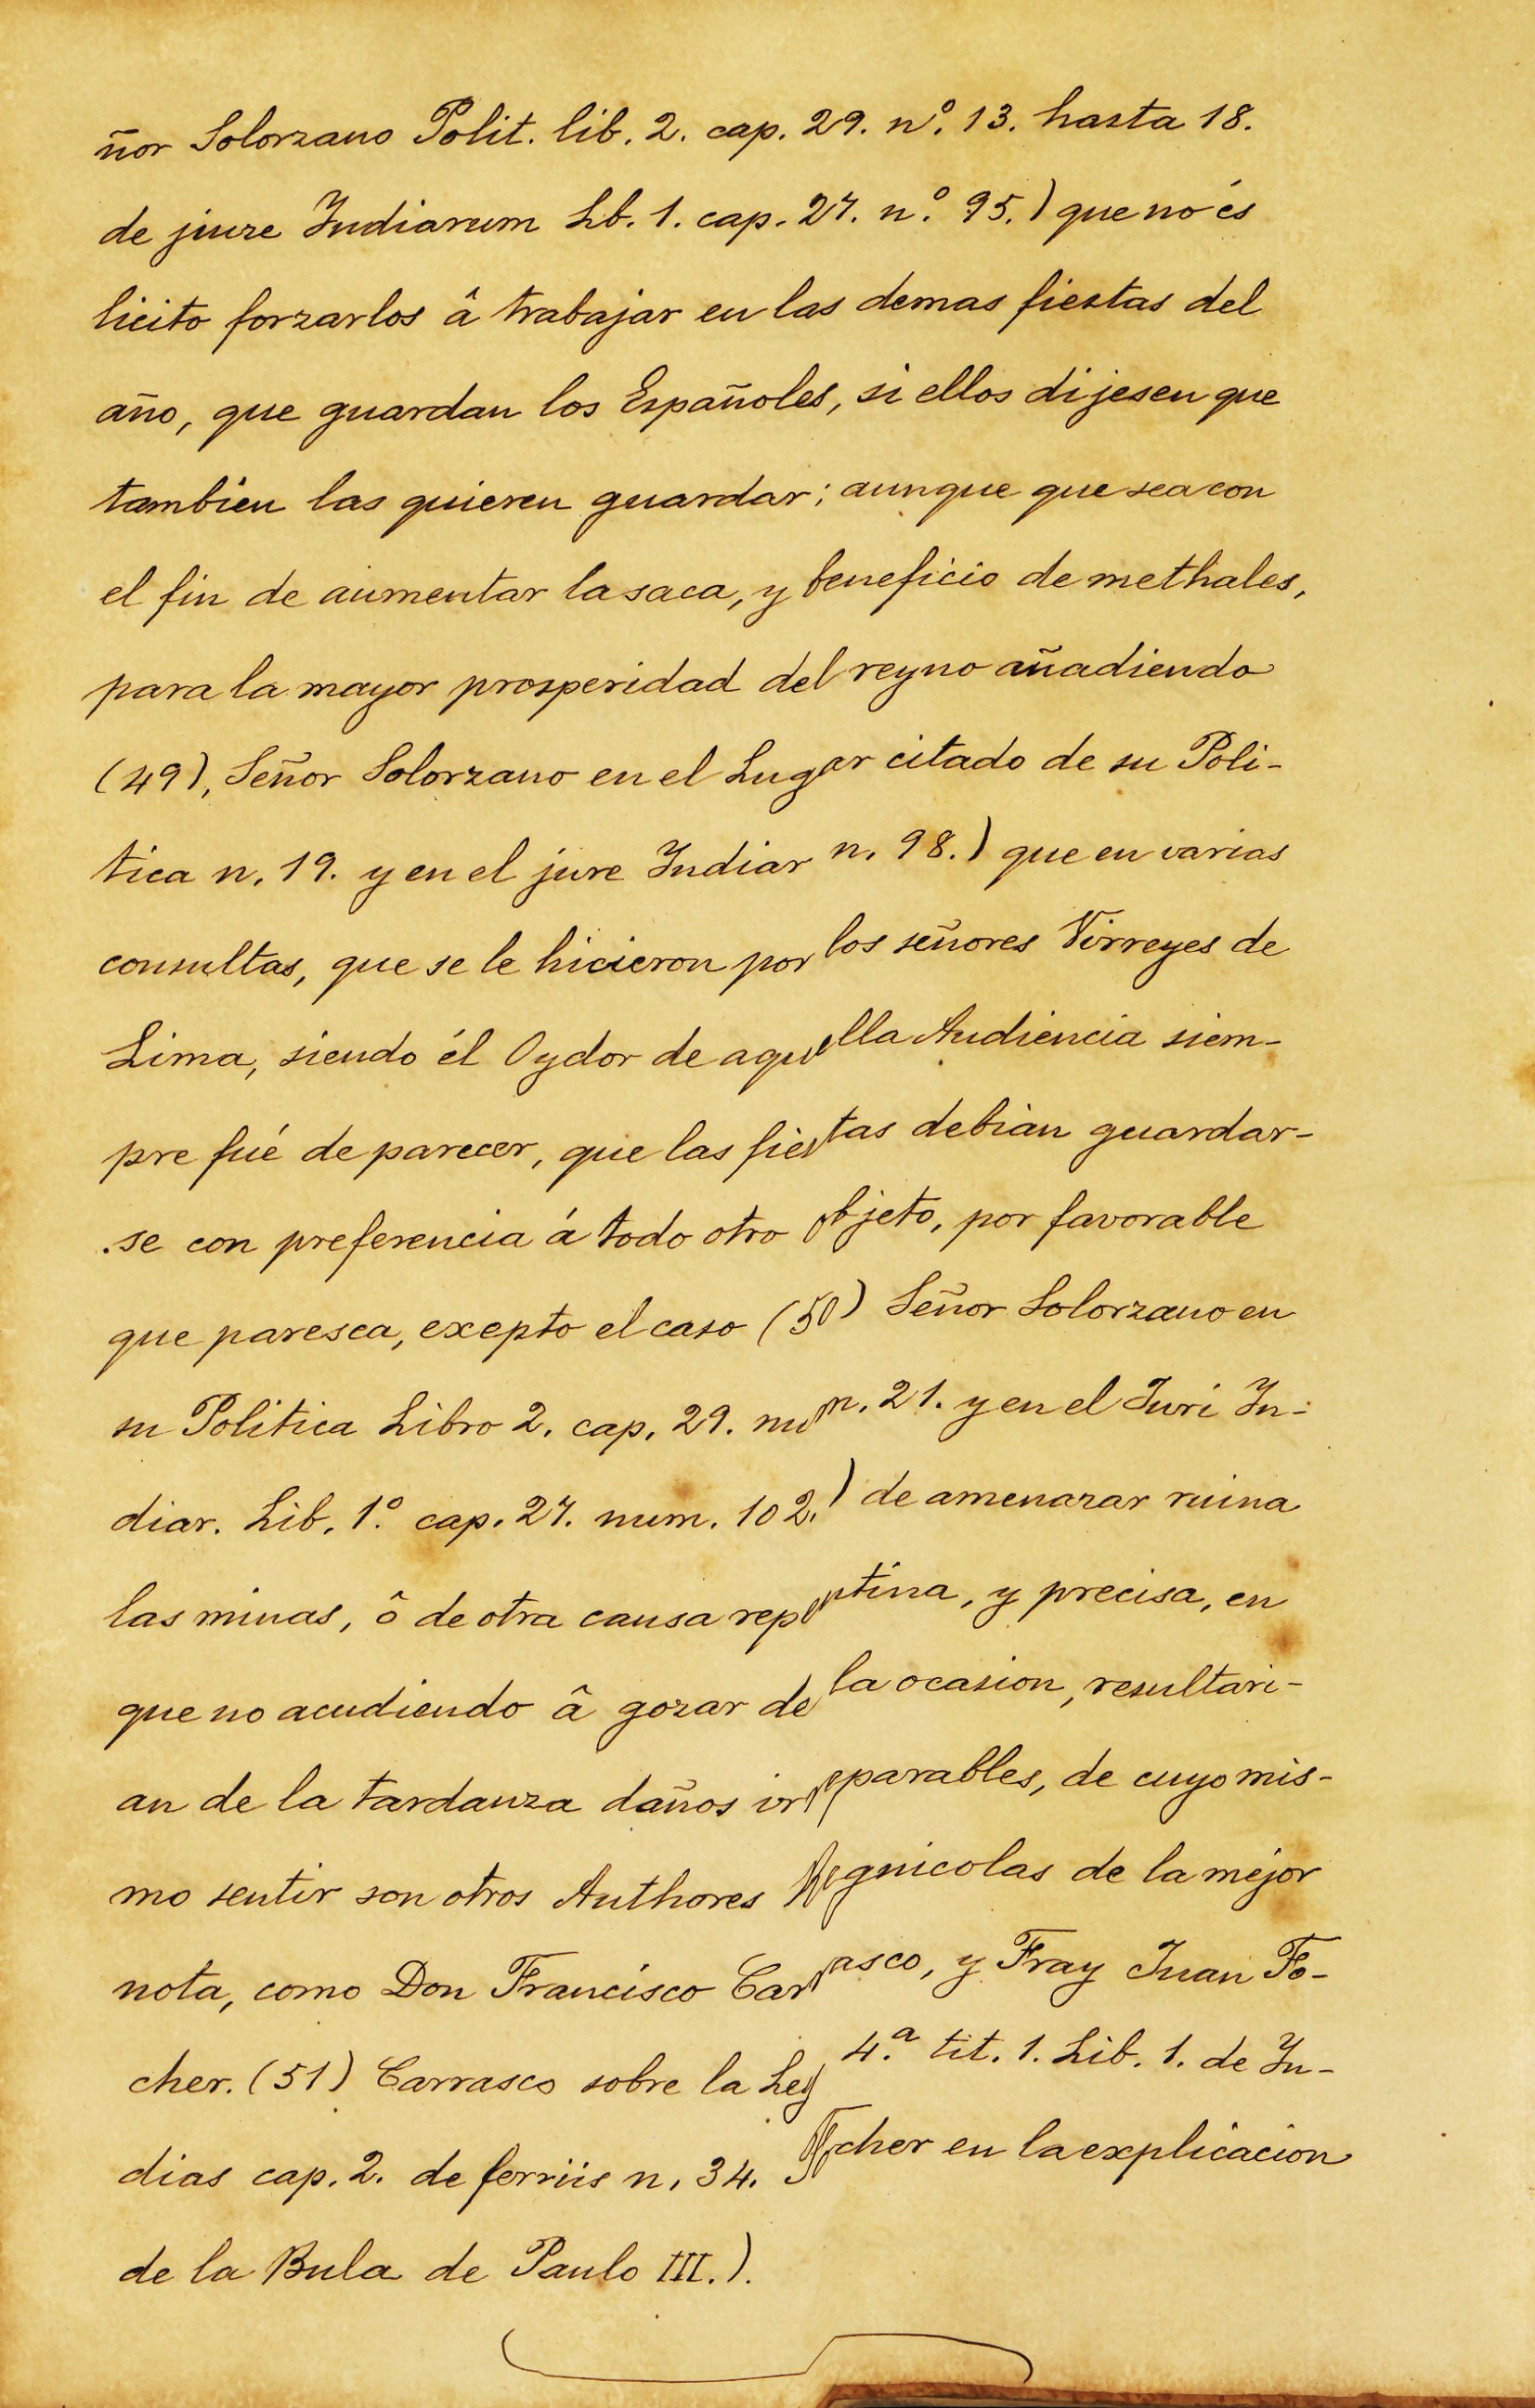 ñor Solorzano Polit. lib. 2. cap. 29. nº. 13. hasta 18.
de jure Indiarum Lb. 1. cap. 27. nº. 95.) que no és
licito forzarlos â trabajar en las demas fiestas del
año, que guardan los Españoles, si ellos dijesen que
tambien las quieren guardar; aunque que sea con
el fin de aumentar la saca, y beneficio de methales,
para la mayor prosperidad del reyno añadiendo
(49), Señor Solorzano en el Lugar citado de su Poli-
tica n. 19. y en el jure Indiar n. 98.) que en varias
consultas, que se le hicieron por los señores Virreyes de
Lima, siendo él Oydor de aquella Audiencia siem-
pre fué de parecer, que las fiestas debian guardar-
se con preferencia á todo otro objeto, por favorable
que paresca, exepto el caso (50) Señor Solorzano en
su Politica Libro 2. cap. 29. num. 21. y en el Juri In-
diar. Lib. 1º. cap. 27. num. 102.) de amenazar ruina
las minas, ô de otra causa repentina, y precisa, en
que no acudiendo â gozar de la ocasion, resultari-
an de la tardanza daños irreparables, de cuyo mis-
mo sentir son otros Authores Regnicolas de la mejor
nota, como Don Francisco Carrasco, y Fray Juan Fo-
cher. (51) Carrasco sobre la Ley 4.ª tit. 1. Lib. 1. de In-
dias cap. 2. de ferriis n. 34. Focher en la explicacion
de la Bula de Paulo III.).